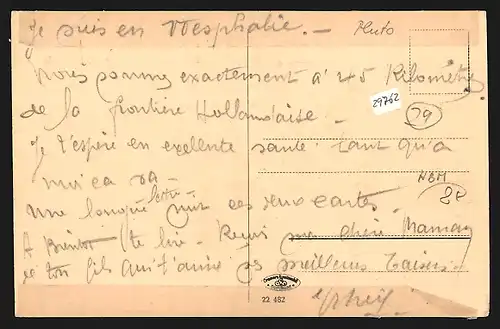 Je suis en Westphalie. -
Photo
Nous sommes exactement a' 45 Kilomètres
29762
de la frontière Hollandaise. -
29
Je t'espère en exellente santé. Tant qu'a
moi ca va -
NBM
Une longue lettre suit ces deux cartes.
A Bientôt te lire. Reçois ma chère Maman
de ton fils qui t'aime ses meilleures baisers
22 482